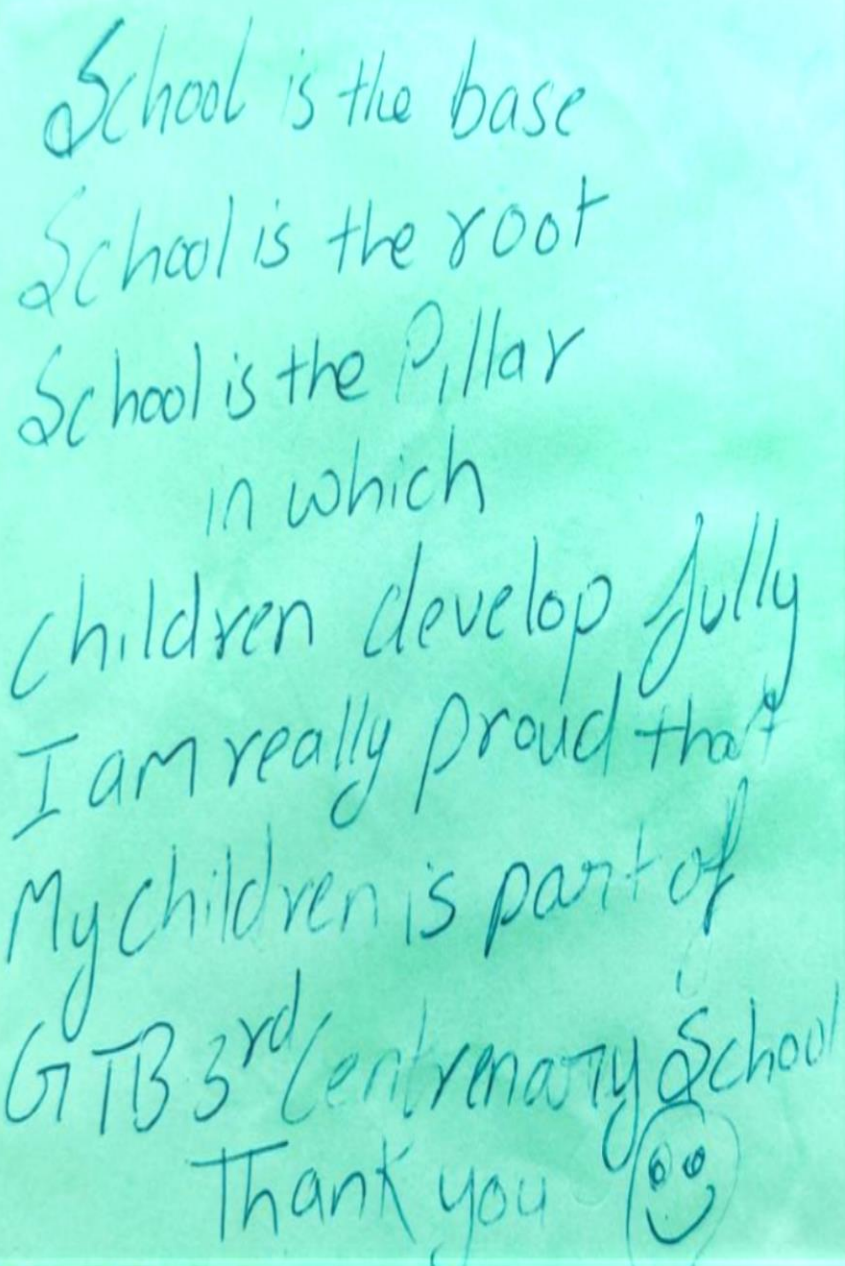 School is the base
School is the root
School is the Pillar
in which
children develop fully
I am really proud that
My children is part of
GTB 3rd Centrenary School
Thank you